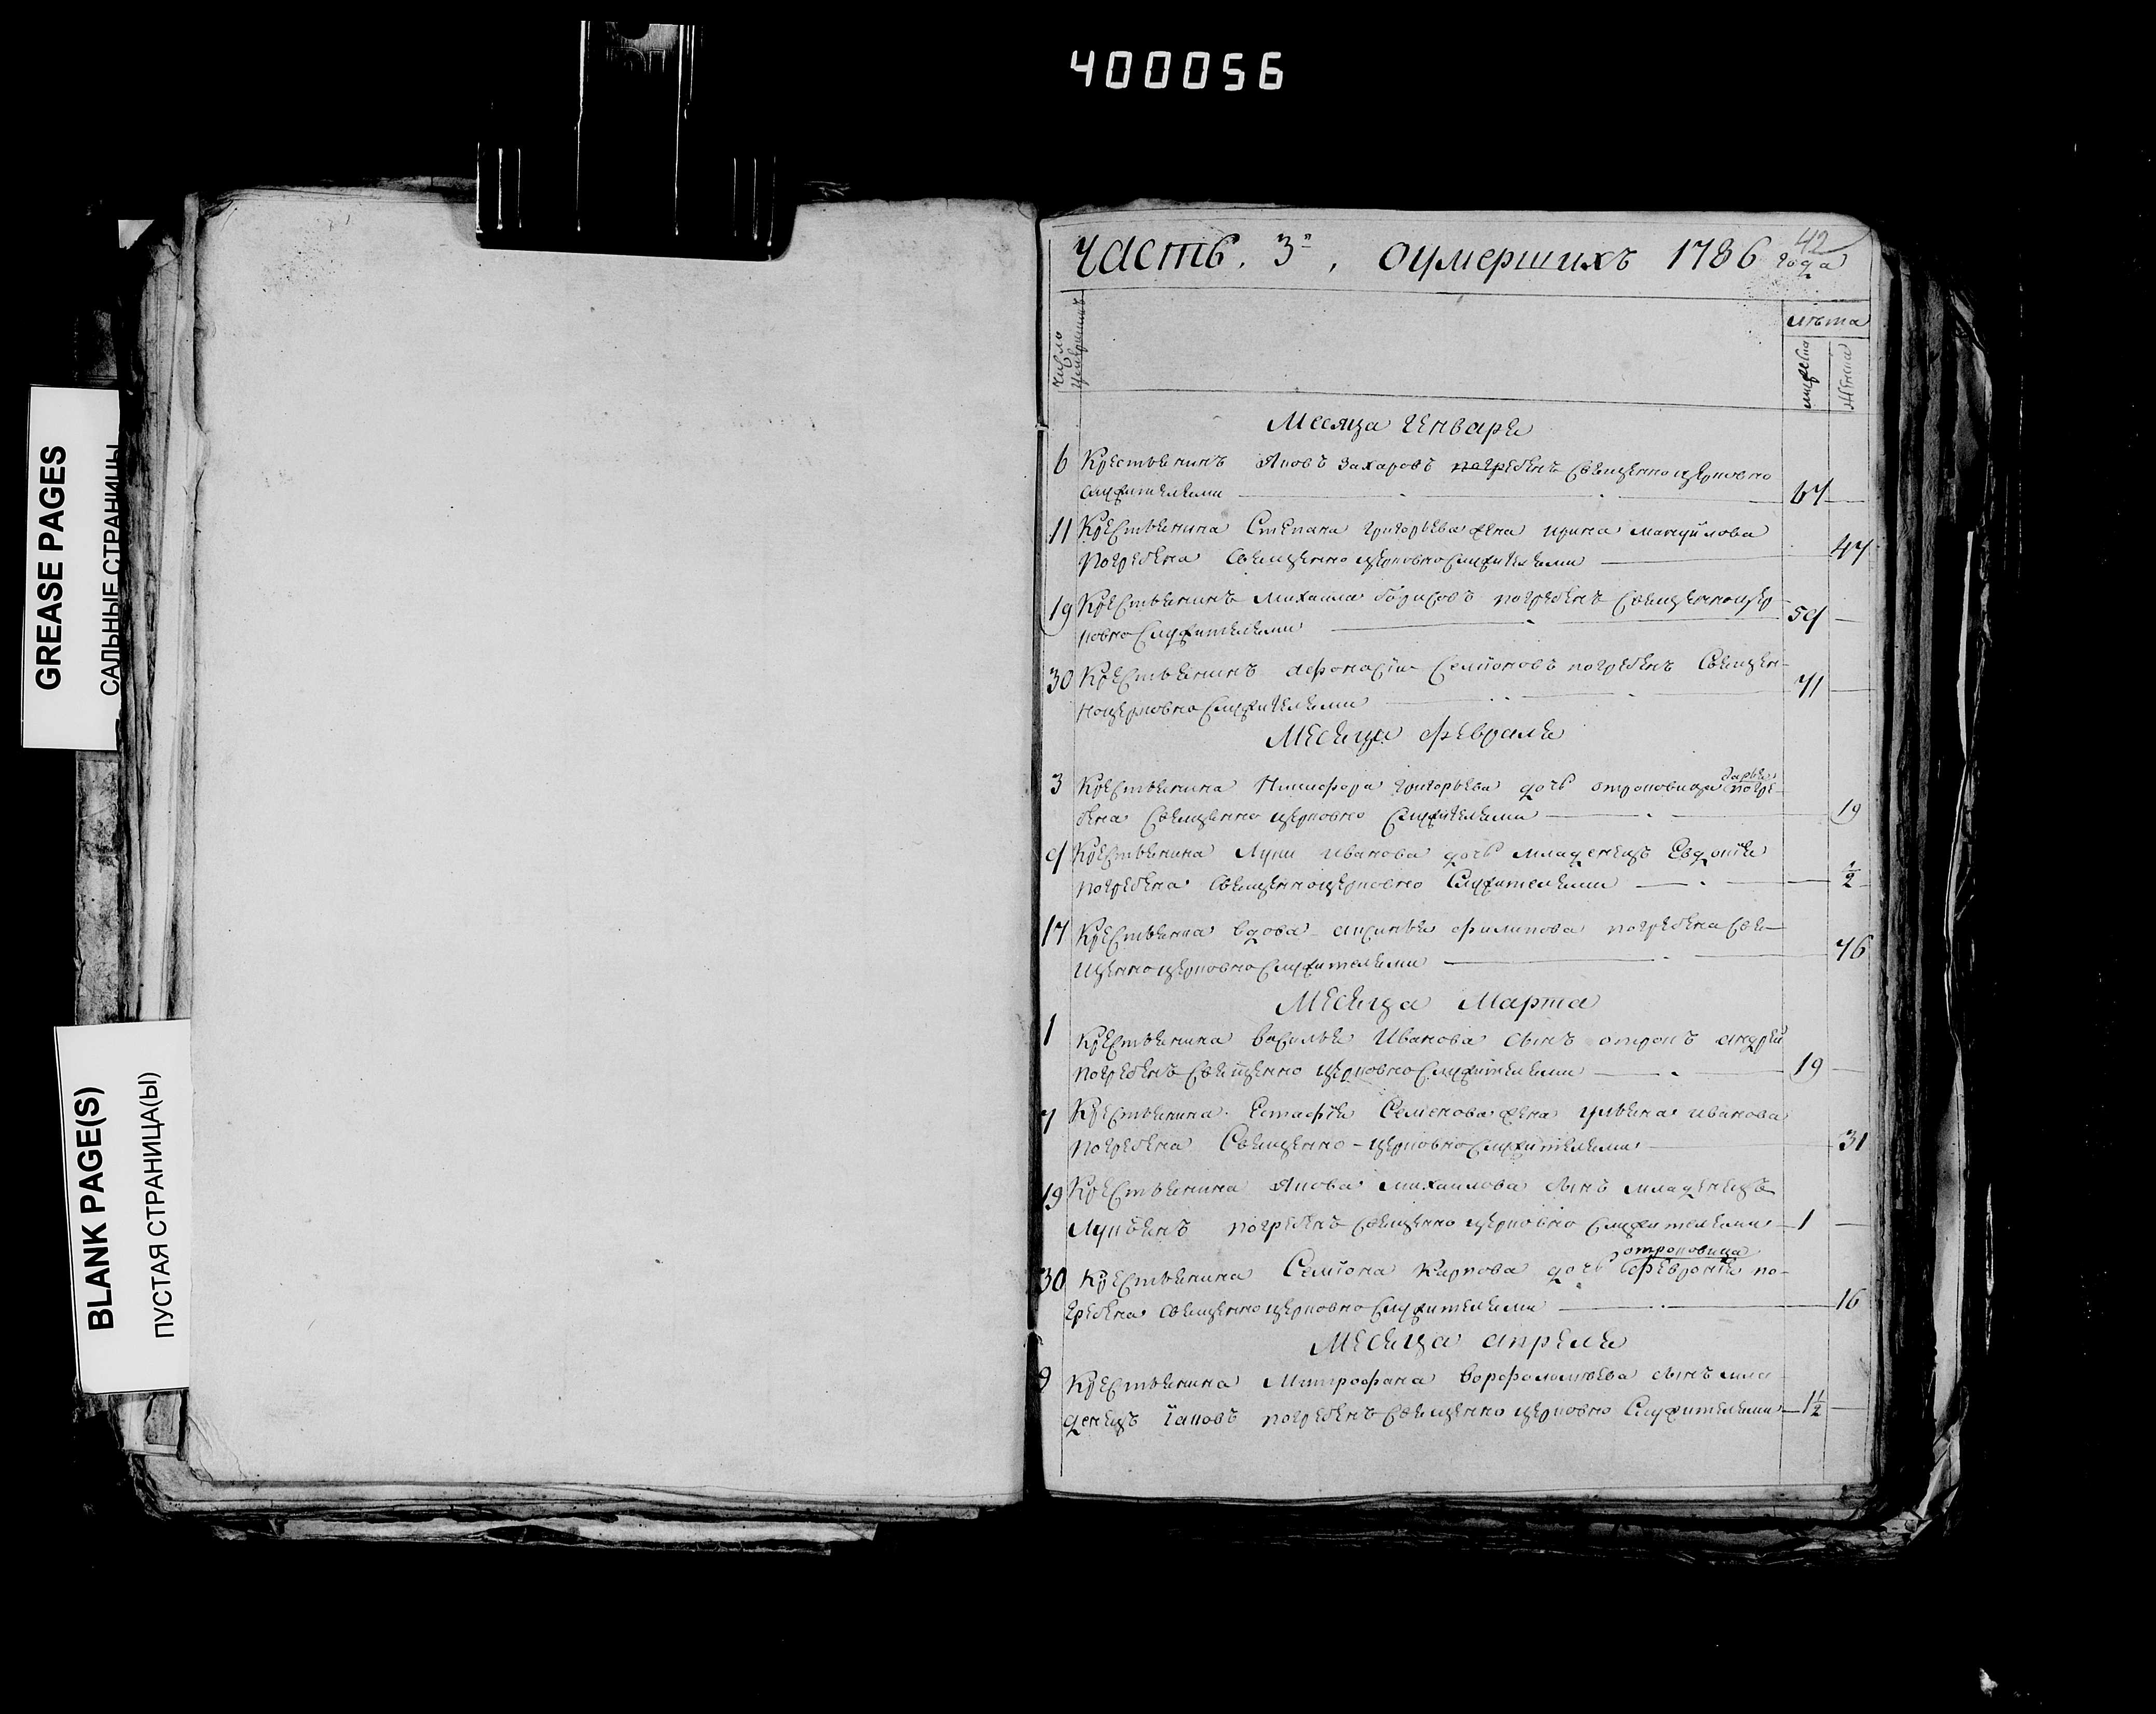 400056
GREASE PAGES
САЛЬНЫЕ СТРАНИЦЫ
BLANK PAGE(S)
ПУСТАЯ СТРАНИЦА(Ы)
42
Часть. 3я, оумершихъ 1786 года
Число умершихъ
лѣта
мужеска
женска
Месяца Генваря
6 Крестьянинъ Яковъ Захаровъ погребенъ священноцерковно
служителями 67
11 Крестьянина Степана Григорьева жена Ирина Мануйлова
погребена священно церковнослужителями 47
19 Крестьянинъ Михаила Борисовъ погребенъ священноцер-
ковнослужителями 59
30 Крестьянинъ Афонасiи Семiоновъ погребенъ священ-
ноцерковнослужителями 71
Месяца Февраля
3 Крестьянина Никифора Григорьева дочь отроковица Дарья погре-
бена священно церковно служителями 19
9 Крестьянина Луки Иванова дочь младенецъ Евдокiя
погребена священноцерковно служителями 1/2
17 Крестьянка вдова Аксинья Филипова погребена свя-
щенноцерковнослужителями 76
Месяца Марта
1 Крестьянина Василья Иванова сынъ отрокъ Андрей
погребенъ священно церковнослужителями 19
7 Крестьянина Естафiя Семенова жена Ульяна Иванова
погребена священно-церковнослужителями 31
19 Крестьянина Якова Михаилова сынъ младенецъ
Лукiянъ погребенъ священно церковно служителями 1
отроковица
30 Крестьянина Семiона Карпова дочь Феврония по-
гребена священноцерковнослужителями 16
Месяца Апреля
9 Крестьянина Митрофана Ворфоломѣева сынъ мла
денецъ Iаковъ погребенъ священно церковно служителями 1 1/2